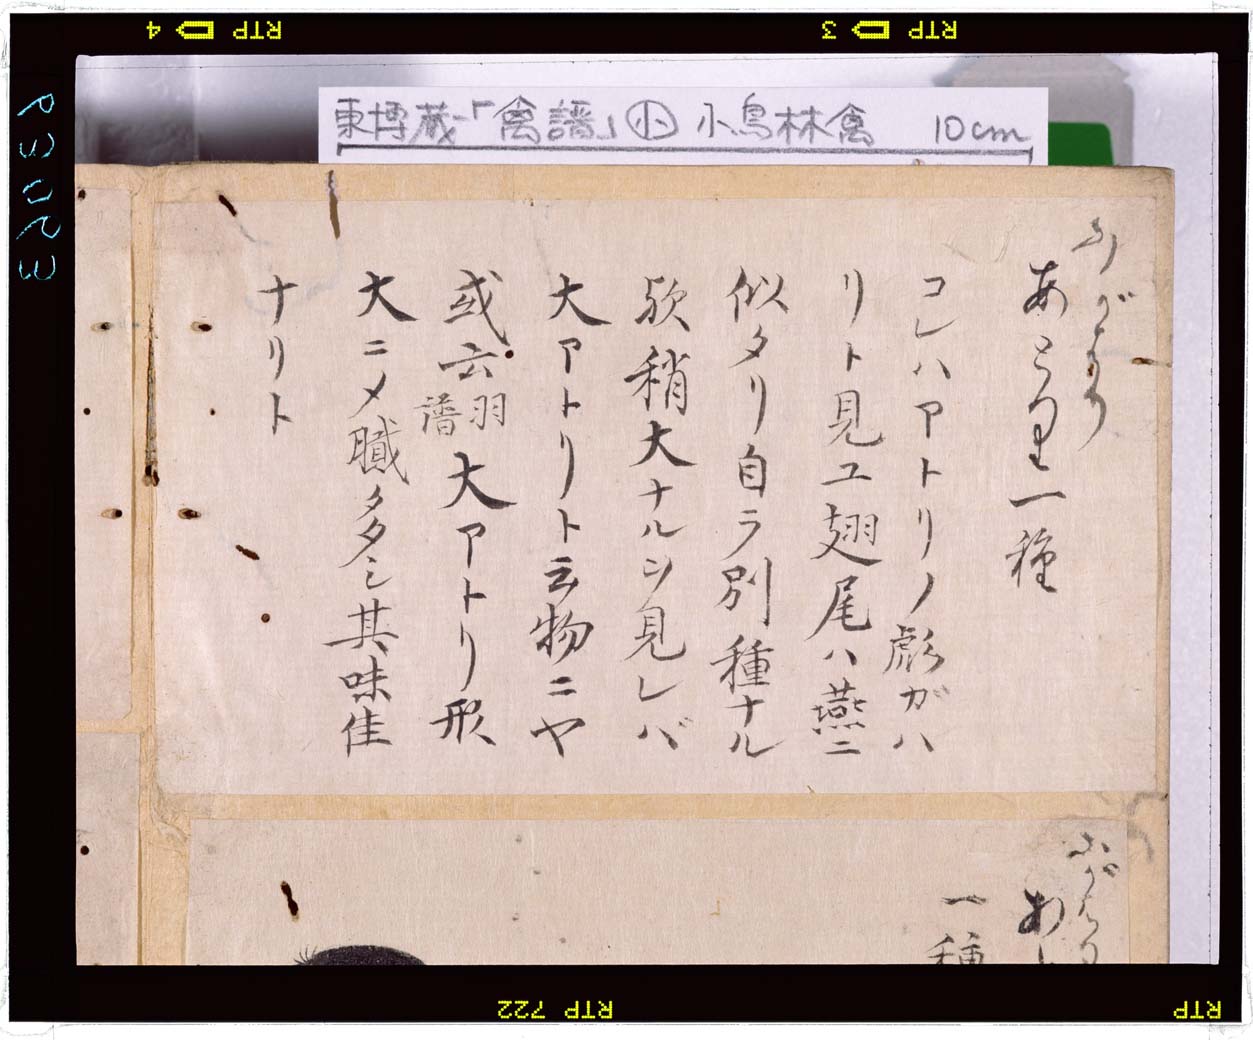 RTP 4
RTP 3
P3023
東博蔵「禽譜」㊦ 小鳥林禽 10cm
あとり一種
コレハアトリノ彪ガハ
リト見ユ翅尾ハ燕ニ
似タリ自ラ別種ナル
欤稍大ナルヲ見レバ
大アトリト云物ニヤ
或云羽譜大アトリ形
大ニメ臓多シ其味佳
ナリト
一種
RTP 722
RTP